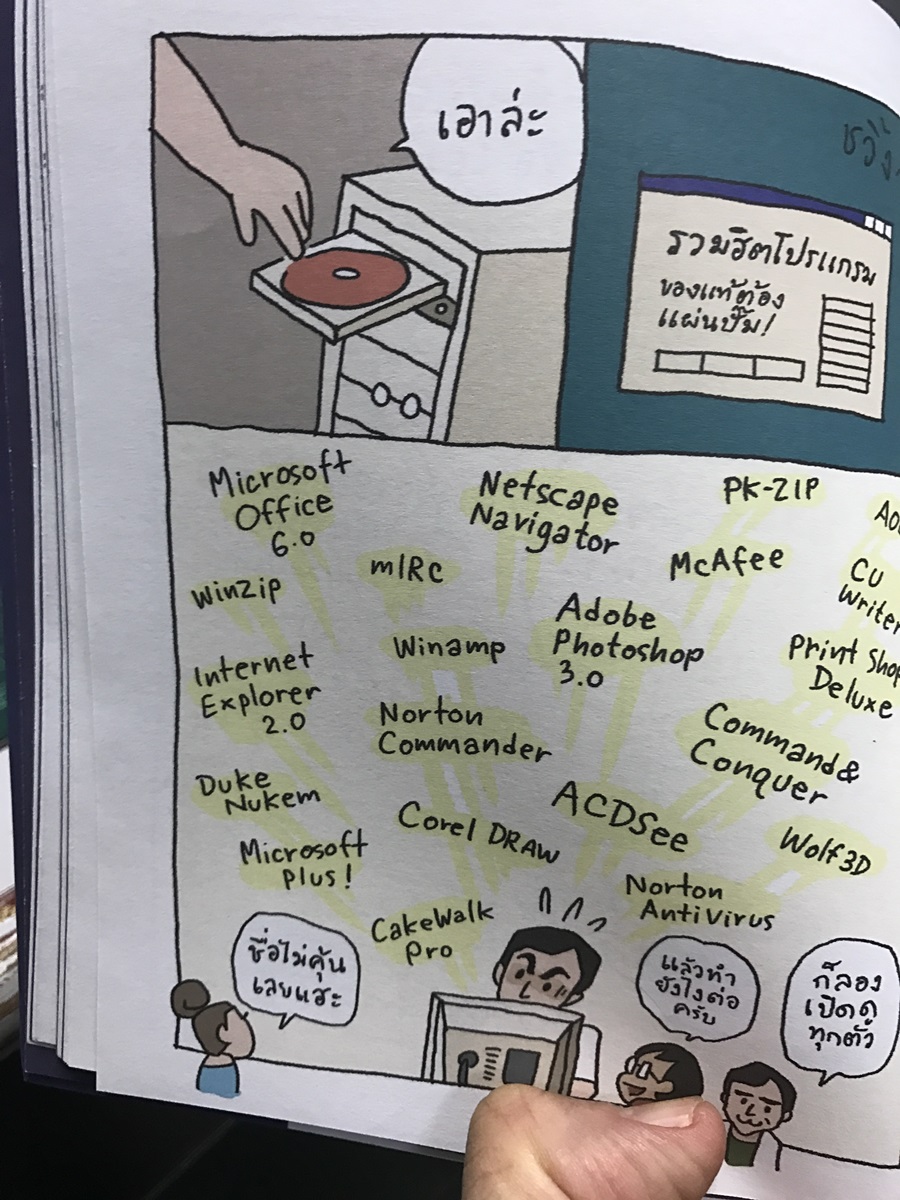 เอาล่ะ
ชวิ้ง
รวมฮิตโปรแกรม
ของแท้ต้อง
แผ่นปั๊ม!
Microsoft
Office
6.0
Netscape
Navigator
PK-ZIP
mIRC
McAfee
CU
Writer
WinZip
Adobe
Photoshop
3.0
Winamp
Print Shop
Deluxe
Internet
Explorer
2.0
Norton
Commander
Command &
Conquer
Duke
Nukem
Corel DRAW
ACDSee
Wolf3D
Microsoft
Plus!
Norton
AntiVirus
CakeWalk
Pro
ชื่อไม่คุ้น
เลยแฮะ
แล้วทำ
ยังไงต่อ
ครับ
ก็ลอง
เปิดดู
ทุกตัว